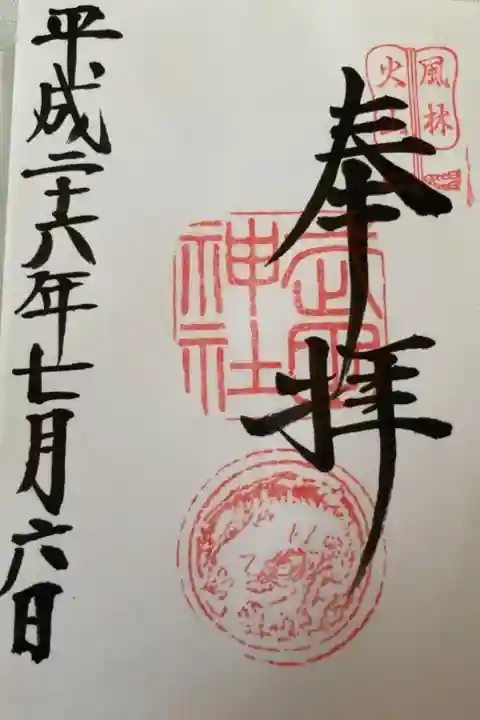 風林
火山
奉拝
武田
神社
平成二十六年七月六日